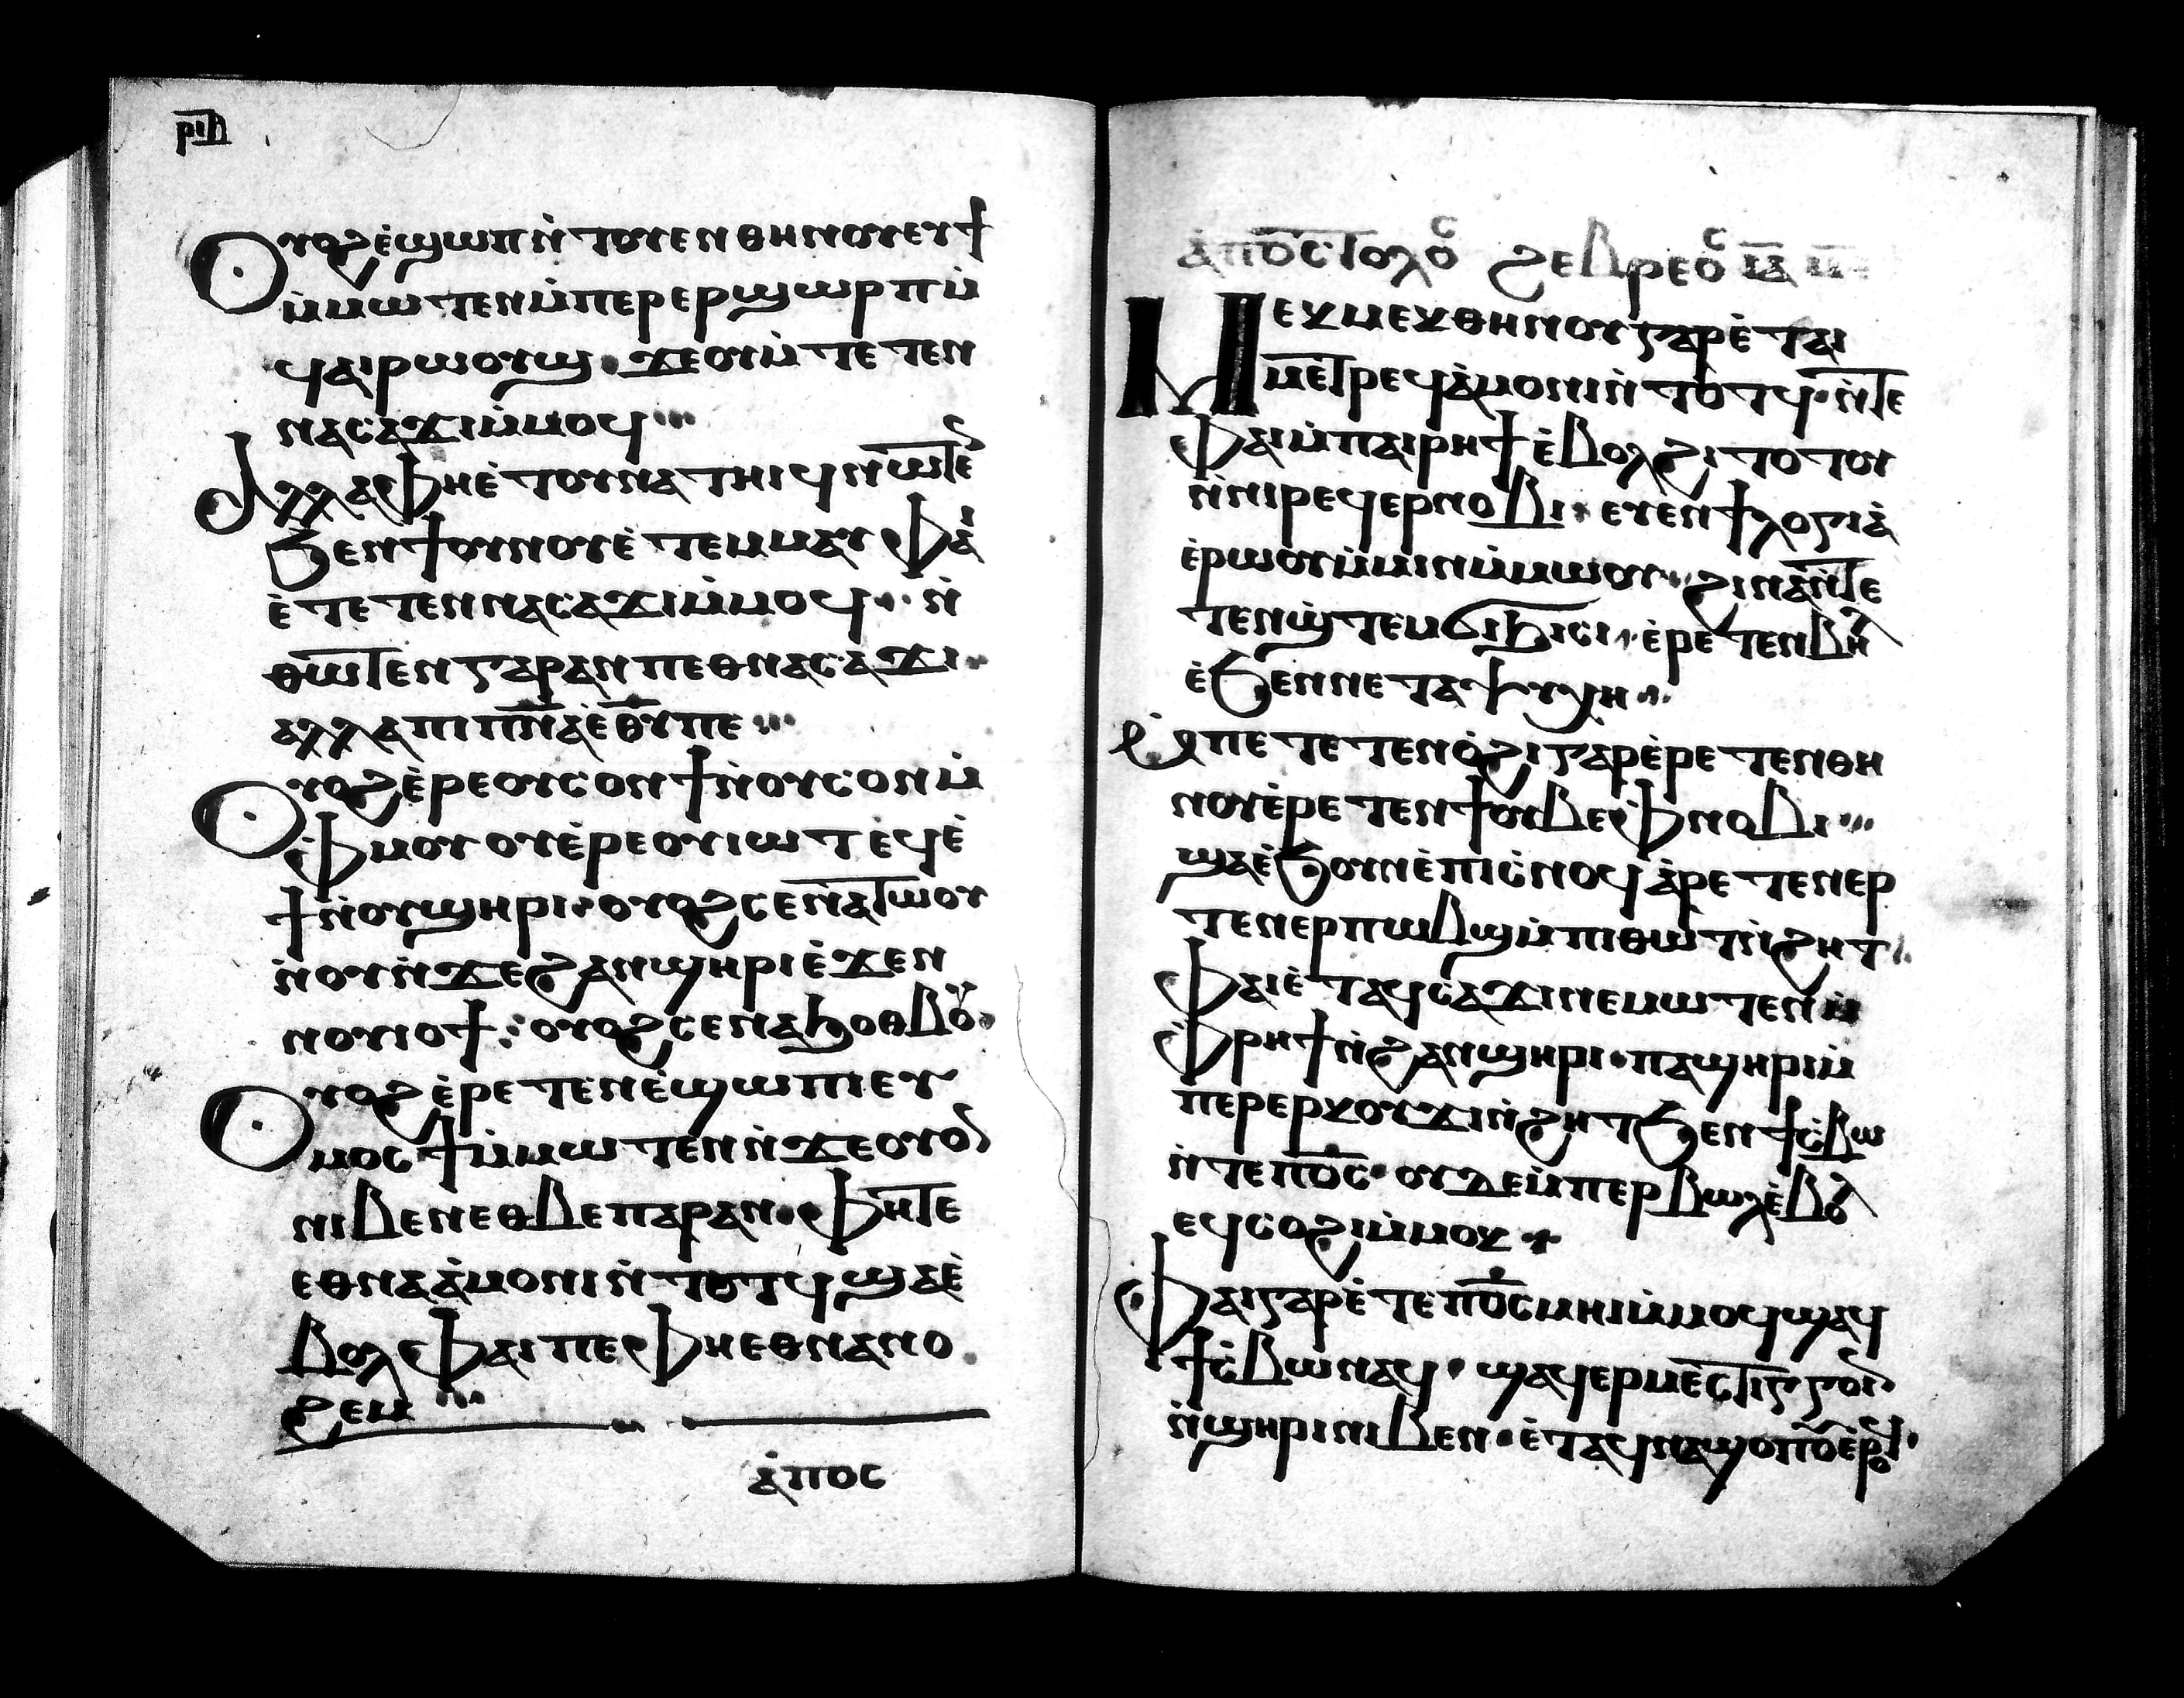 ⲣⲓⲏ
Ⲟⲩⲟϩ ⲉ̀ϣⲱⲡ ⲛ̀ⲧⲟⲩⲉⲛ ⲑⲏⲛⲟⲩ ⲉⲩϯ
ⲙ̀ⲙⲱⲧⲉⲛ ⲙ̀ⲡⲉⲣⲉⲣϣⲱⲣⲡ ⲙ̀
ϥⲁⲓⲣⲱⲟⲩϣ · ϫⲉ ⲟⲩ ⲙ̀ⲧⲉⲧⲉⲛ
ⲛⲁⲥⲁϫⲓ ⲙ̀ⲙⲟϥ
Ⲁⲗⲗⲁ ⲫⲏ ⲉ̀ⲧⲟⲩⲛⲁⲧⲏⲓϥ ⲛⲱⲧⲉ̅
ϧⲉⲛ ϯⲟⲩⲛⲟⲩ ⲉ̀ⲧⲉⲙⲙⲁⲩ ⲫⲁⲓ
ⲉ̀ⲧⲉⲧⲉⲛⲛⲁⲥⲁϫⲓ ⲙ̀ⲙⲟϥ · ⲛ̀
ⲑⲱⲧⲉⲛ ⲅⲁⲣ ⲁⲛ ⲡⲉⲑⲛⲁⲥⲁϫⲓ ·
ⲁⲗⲗⲁ ⲡⲓⲡⲛ̅ⲁ̅ ⲉ̀ⲑ̅ⲩ̅ ⲡⲉ
Ⲟⲩⲟϩ ⲉ̀ⲣⲉ ⲟⲩⲥⲟⲛ ϯ ⲛ̀ⲟⲩⲥⲟⲛ ⲙ̀
ⲫⲙⲟⲩ ⲟⲩ ⲉ̀ⲣⲉ ⲟⲩⲓⲱⲧ ⲉϥⲉ̀
ϯ ⲛ̀ⲟⲩϣⲏⲣⲓ · ⲟⲩⲟϩ ⲥⲉⲛⲁⲧⲱⲟⲩ
ⲛ̀ⲟⲩ ⲛ̀ϫⲉ ϩⲁⲛϣⲏⲣⲓ ⲉ̀ϫⲉⲛ
ⲛⲟⲩⲓⲟϯ : ⲟⲩⲟϩ ⲥⲉⲛⲁϧⲟⲑⲃⲟⲩ
Ⲟⲩⲟϩ ⲉ̀ⲣⲉⲧⲉⲛⲉ̀ϣⲱⲡⲓ ⲉⲩ
ⲙⲟⲥϯ ⲙ̀ⲙⲱⲧⲉⲛ ⲛ̀ϫⲉ ⲟⲩⲟⲛ
ⲛⲓⲃⲉⲛ ⲉⲑⲃⲉ ⲡⲁⲣⲁⲛ · ⲫⲏ ⲇⲉ
ⲉⲑⲛⲁⲁ̀ⲙⲟⲛⲓ ⲛ̀ⲧⲟⲧϥ ϣⲁ ⲉ̀
ⲃⲟⲗ ⲫⲁⲓ ⲡⲉ ⲫⲏ ⲉⲑⲛⲁⲛⲟ
ϩⲉⲙ
ⲁ̀ⲡⲟⲥ
ⲁ̀ⲡⲟⲥⲧⲟⲗⲟⲥ ϩⲉⲃⲣⲉⲟⲥ
Ⲙⲉⲕⲙⲉⲕ ⲑⲏⲛⲟⲩ ⲅⲁⲣ ⲉ̀ⲧⲁⲓ
ⲙⲉⲧⲣⲉϥⲁ̀ⲙⲟⲛⲓ ⲛ̀ⲧⲟⲧϥ · ⲛ̀ⲧⲉ
ⲫⲁⲓ ⲙ̀ⲡⲁⲓⲣⲏϯ ⲉ̀ⲃⲟⲗ ϩⲓⲧⲟⲧⲟⲩ
ⲛ̀ⲛⲓⲣⲉϥⲉⲣⲛⲟⲃⲓ · ⲉⲩⲉⲛϯⲗⲟⲅⲓⲁ̀
ⲉ̀ⲣⲱⲟⲩ ⲙ̀ⲙⲓⲛ ⲙ̀ⲙⲱⲟⲩ · ϩⲓⲛⲁ ⲛ̀ⲧⲉ
ⲧⲉⲛϣ̀ⲧⲉⲙϭⲓϧⲓⲥⲓ · ⲉ̀ⲣⲉⲧⲉⲛⲃⲏⲗ
ⲉ̀ϧⲉⲛ ⲛⲉⲧⲁⲯⲩⲭⲏ
ⲙ̀ⲡⲉⲧⲉⲧⲉⲛⲟ̀ϩⲓ ⲅⲁⲣ ⲉ̀ⲣⲉⲧⲉⲛ ⲑⲏ
ⲛⲟⲩ ⲉ̀ⲣⲉⲧⲉⲛϯ ⲟⲩⲃⲉ ⲫⲛⲟⲃⲓ
ϣⲁ ⲉ̀ϧⲟⲩⲛ ⲉ̀ⲡⲓⲥ̀ⲛⲟϥ ⲁ̀ⲣⲉⲧⲉⲛⲉⲣ
ⲧⲉⲛⲉⲣⲡⲱⲃϣ ⲙ̀ⲡⲓⲑⲱⲧ ⲛ̀ϩⲏⲧ
ⲫⲁⲓ ⲉ̀ⲧⲁϥⲥⲁϫⲓ ⲛⲉⲙⲱⲧⲉⲛ ⲙ̀
ⲫⲣⲏϯ ⲛ̀ϩⲁⲛϣⲏⲣⲓ · ⲡⲁϣⲏⲣⲓ ⲙ̀
ⲡⲉⲣⲉⲣⲕⲟⲩϫⲓ ⲛ̀ϩⲏⲧ ϧⲉⲛ ϯⲥ̀ⲃⲱ
ⲛ̀ⲧⲉ ⲡⲟ̅ⲥ̅ · ⲟⲩⲇⲉ ⲙ̀ⲡⲉⲣⲃⲱⲗ ⲉ̀ⲃⲟⲗ
ⲉϥⲥⲟϩⲓ ⲙ̀ⲙⲟⲕ
Ⲫⲁⲓ ⲅⲁⲣ ⲉ̀ⲧⲉ ⲡⲟ̅ⲥ̅ ⲙⲏⲓ ⲙ̀ⲙⲟϥ ϣⲁϥ
ϯⲥ̀ⲃⲱ ⲛⲁϥ · ϣⲁϥⲉⲣⲙⲉⲥⲧⲓⲅⲅⲟⲓⲛ
ⲛ̀ϣⲏⲣⲓ ⲛⲓⲃⲉⲛ · ⲉ̀ⲧⲁϥⲛⲁϣⲟⲡⲟⲩ ⲉ̀ⲣⲟϥ